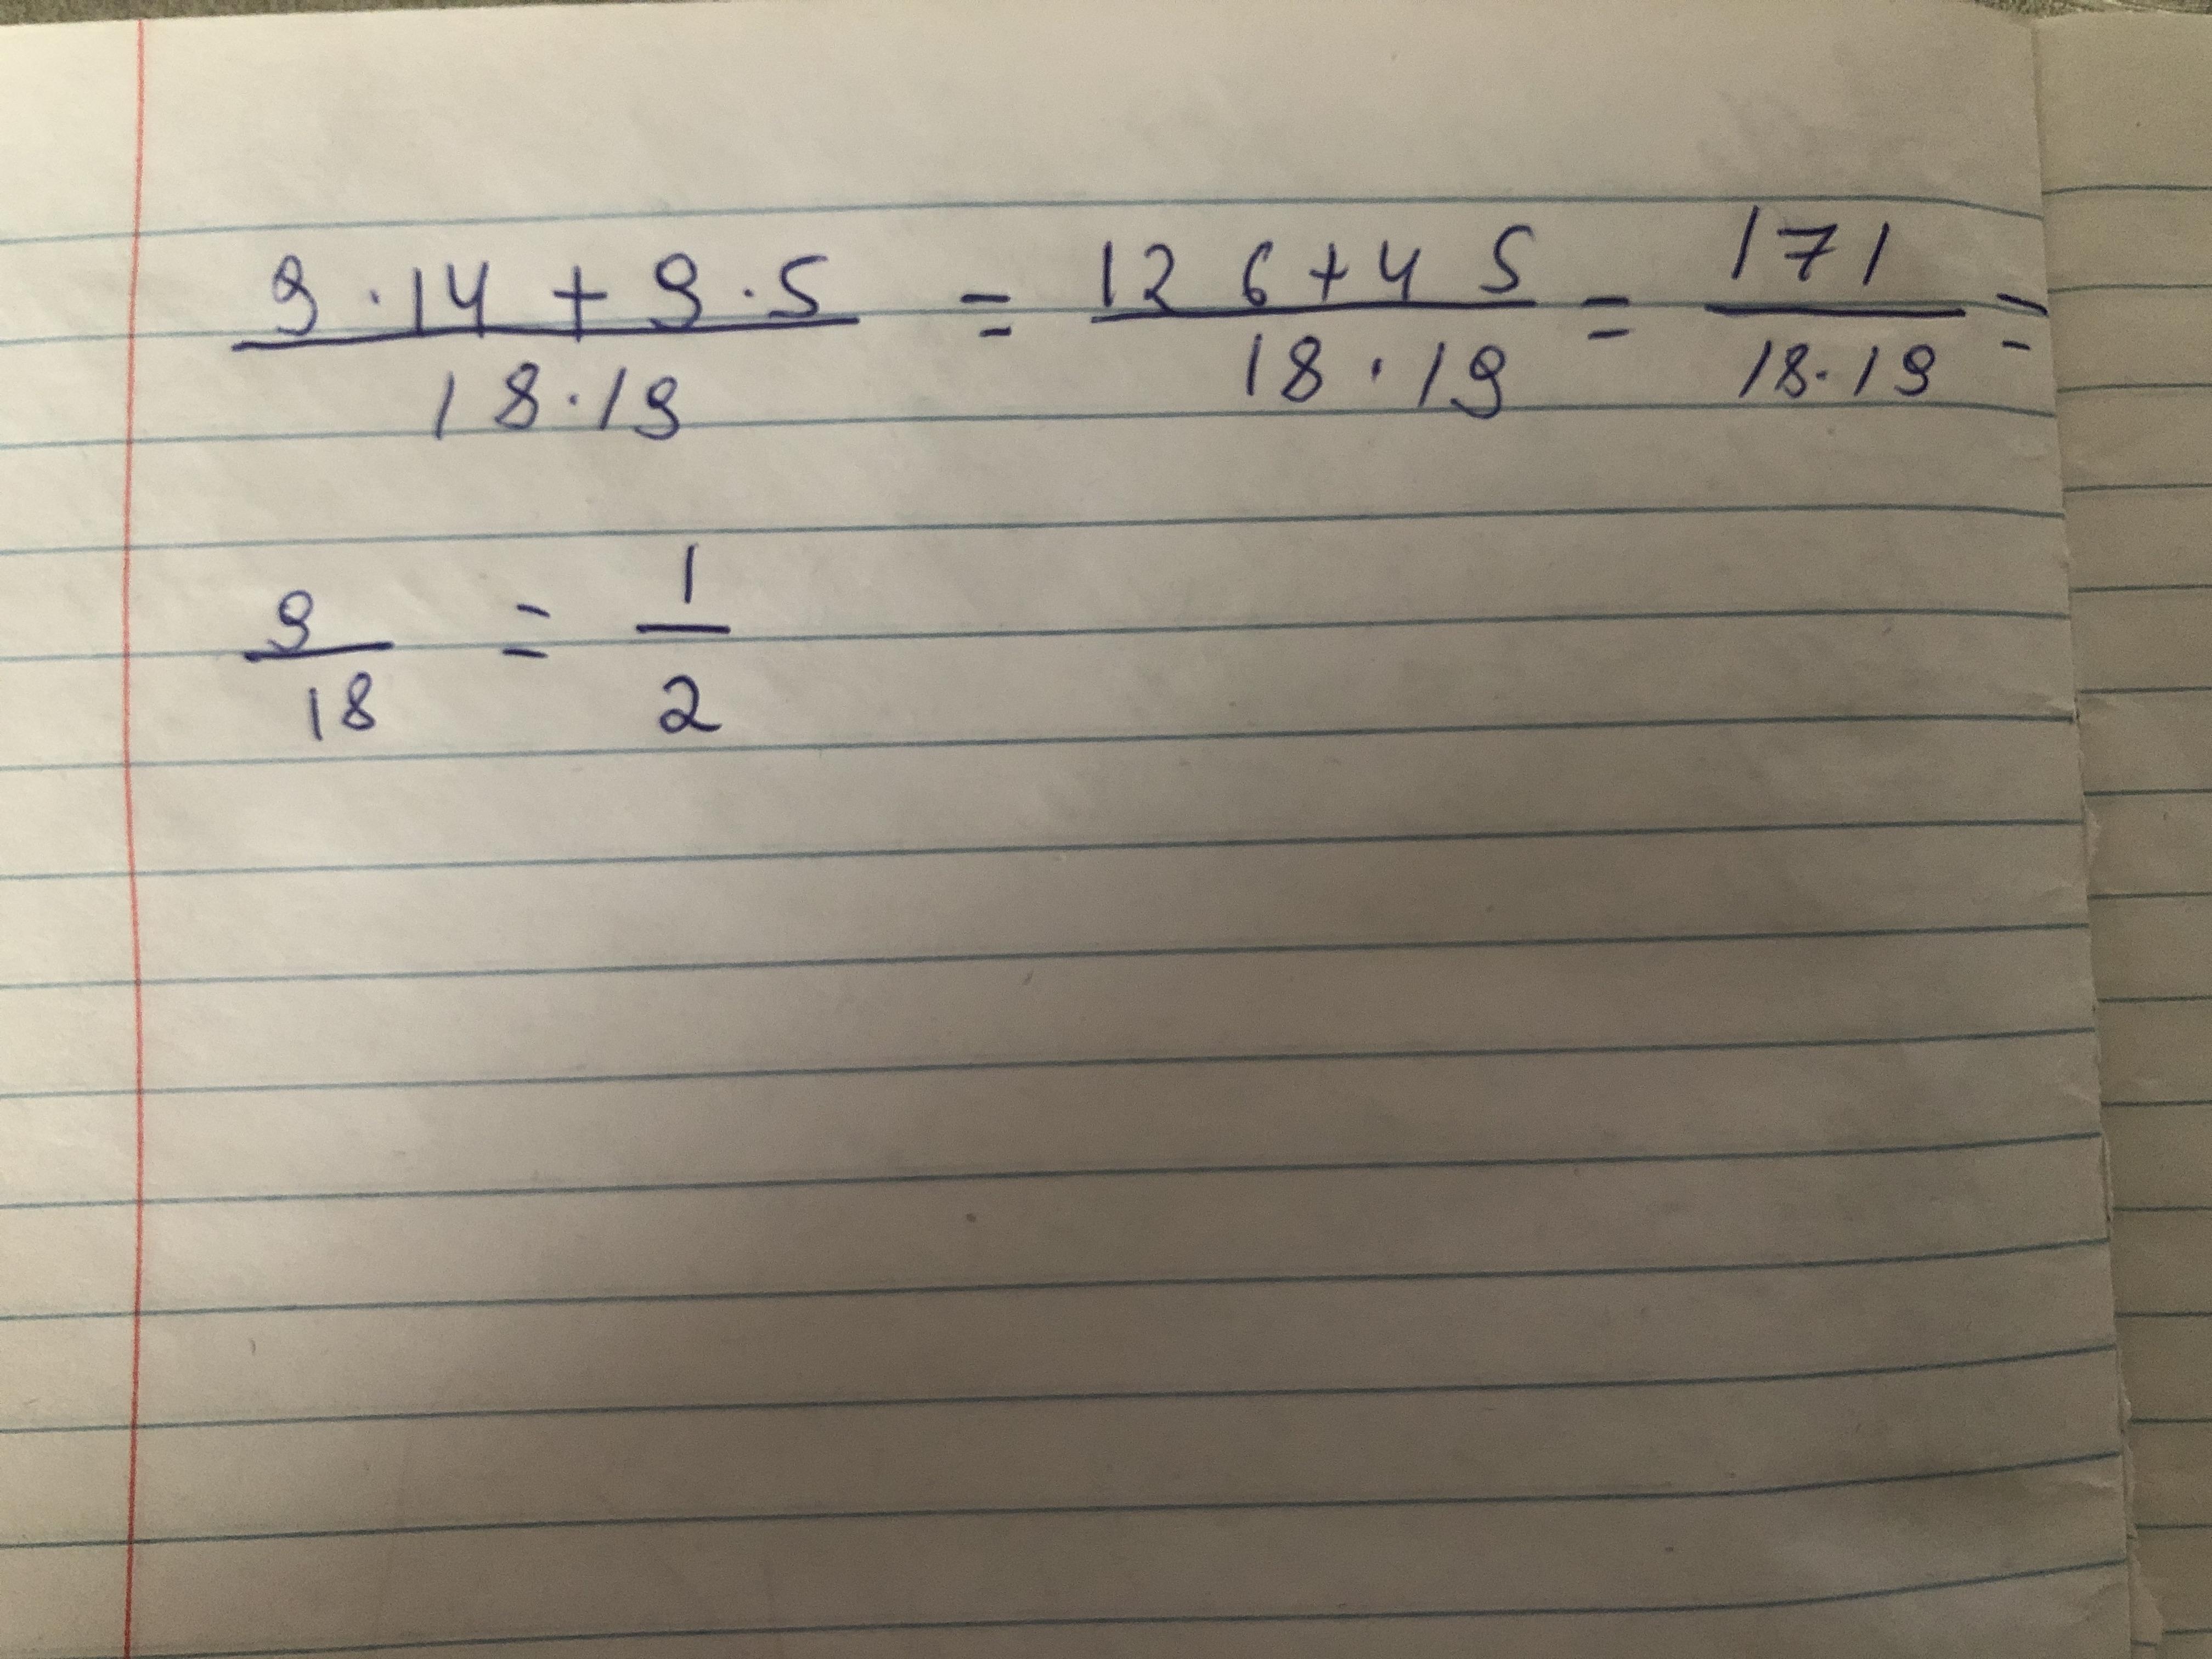 9·14 + 9·5 / 18·19 = 126+45 / 18·19 = 171 / 18·19 =
9/18 = 1/2